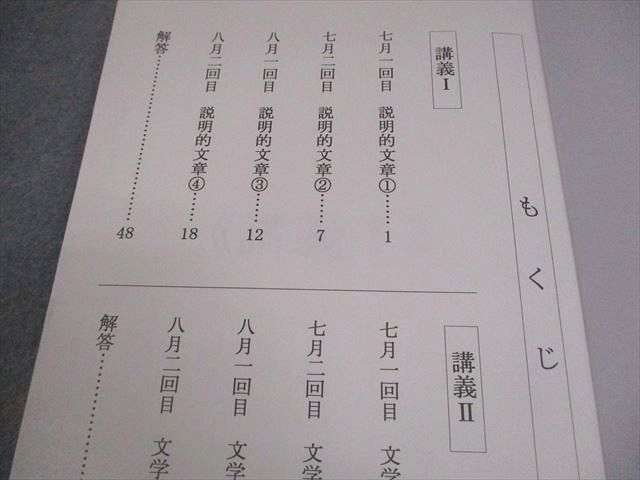 もくじ
講義Ⅰ
七月一回目 説明的文章①……1
七月二回目 説明的文章②……7
八月一回目 説明的文章③……12
八月二回目 説明的文章④……18
解答……………………………48
講義Ⅱ
七月一回目 文学
七月二回目 文学
八月一回目 文学
八月二回目 文学
解答……………